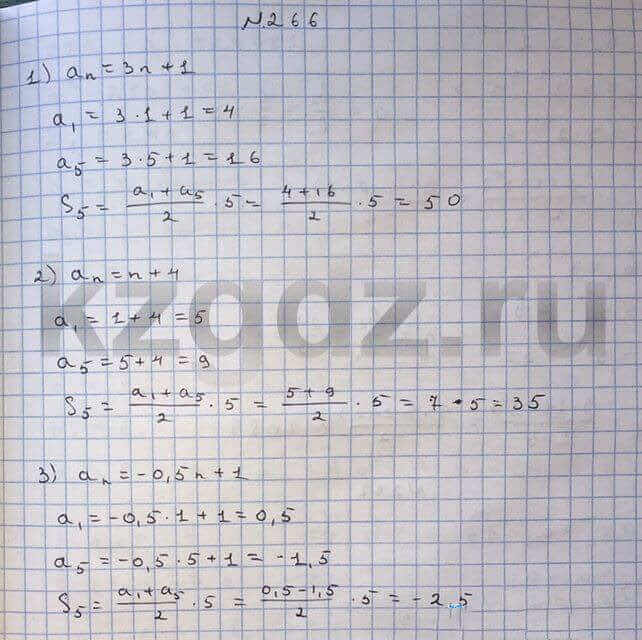 N.266
1) aₙ = 3n + 1
a₁ = 3 · 1 + 1 = 4
a₅ = 3 · 5 + 1 = 16
S₅ = (a₁ + a₅)/2 · 5 = (4 + 16)/2 · 5 = 50
2) aₙ = n + 4
kzgdz.ru
a₁ = 1 + 4 = 5
a₅ = 5 + 4 = 9
S₅ = (a₁ + a₅)/2 · 5 = (5 + 9)/2 · 5 = 7 · 5 = 35
3) aₙ = -0,5n + 1
a₁ = -0,5 · 1 + 1 = 0,5
a₅ = -0,5 · 5 + 1 = -1,5
S₅ = (a₁ + a₅)/2 · 5 = (0,5 - 1,5)/2 · 5 = -2,5